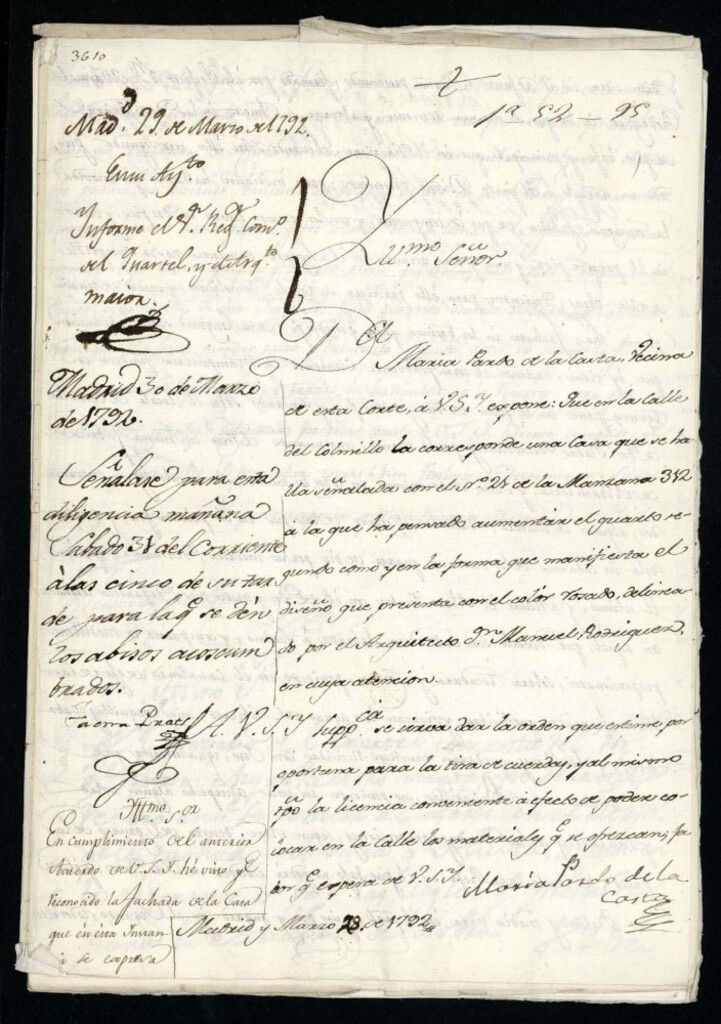 3610
1ª 52 - 95
Mad.d 29. de Marzo de 1792.
En su Ay.to
Informe el S.r Reg.r Com.o
del Quartel, y el Arq.to
maior.
Madrid 30 de Marzo
de 1792.
Señálase para esta
diligencia mañana
Sabado 31 del Corriente
à las cinco de su tar
de para la q.e se dén
los abisos acostum
brados.
Prats
Yllmo. S.or
En cumplimiento del anterior
Acuerdo de V.S.Y. hé visto y
reconocido la fachada de la Casa
que en esta Ynstan
se expresa
Yllmo Señor
D.a Maria Pardo de la Casta, Vecina
de esta Corte, á V.S.Y. expone: Que en la Calle
del Colmillo la corresponde una Casa que se ha
lla señalada con el nº 21 de la Manzana 312
a la que ha pensado aumentar el quarto se-
gundo como y en la forma que manifiesta el
diseño que presenta con el color rosado, delinea
do por el Arquitecto d.n Manuel Rodriguez,
en cuya atencion.
A. V.S.Y supp.ca se sirva dar la orden que estime por
oportuna para la tira de cuerdas, y al mismo
tpo la licencia conveniente à efecto de poder co-
locar en la Calle los materiales q.e se ofrezcan, fa
bor q.e espera de V.S.Y.
Madrid y Marzo 28 de 1792
Maria Pardo de la
Casta